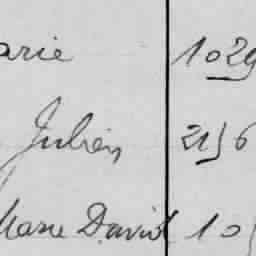 arie 1029
Julien 2156
Marie David 10